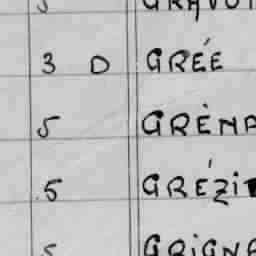 3 D GRÉE
5 GRÈNA
5 GRÉZI
5 GRIGNA